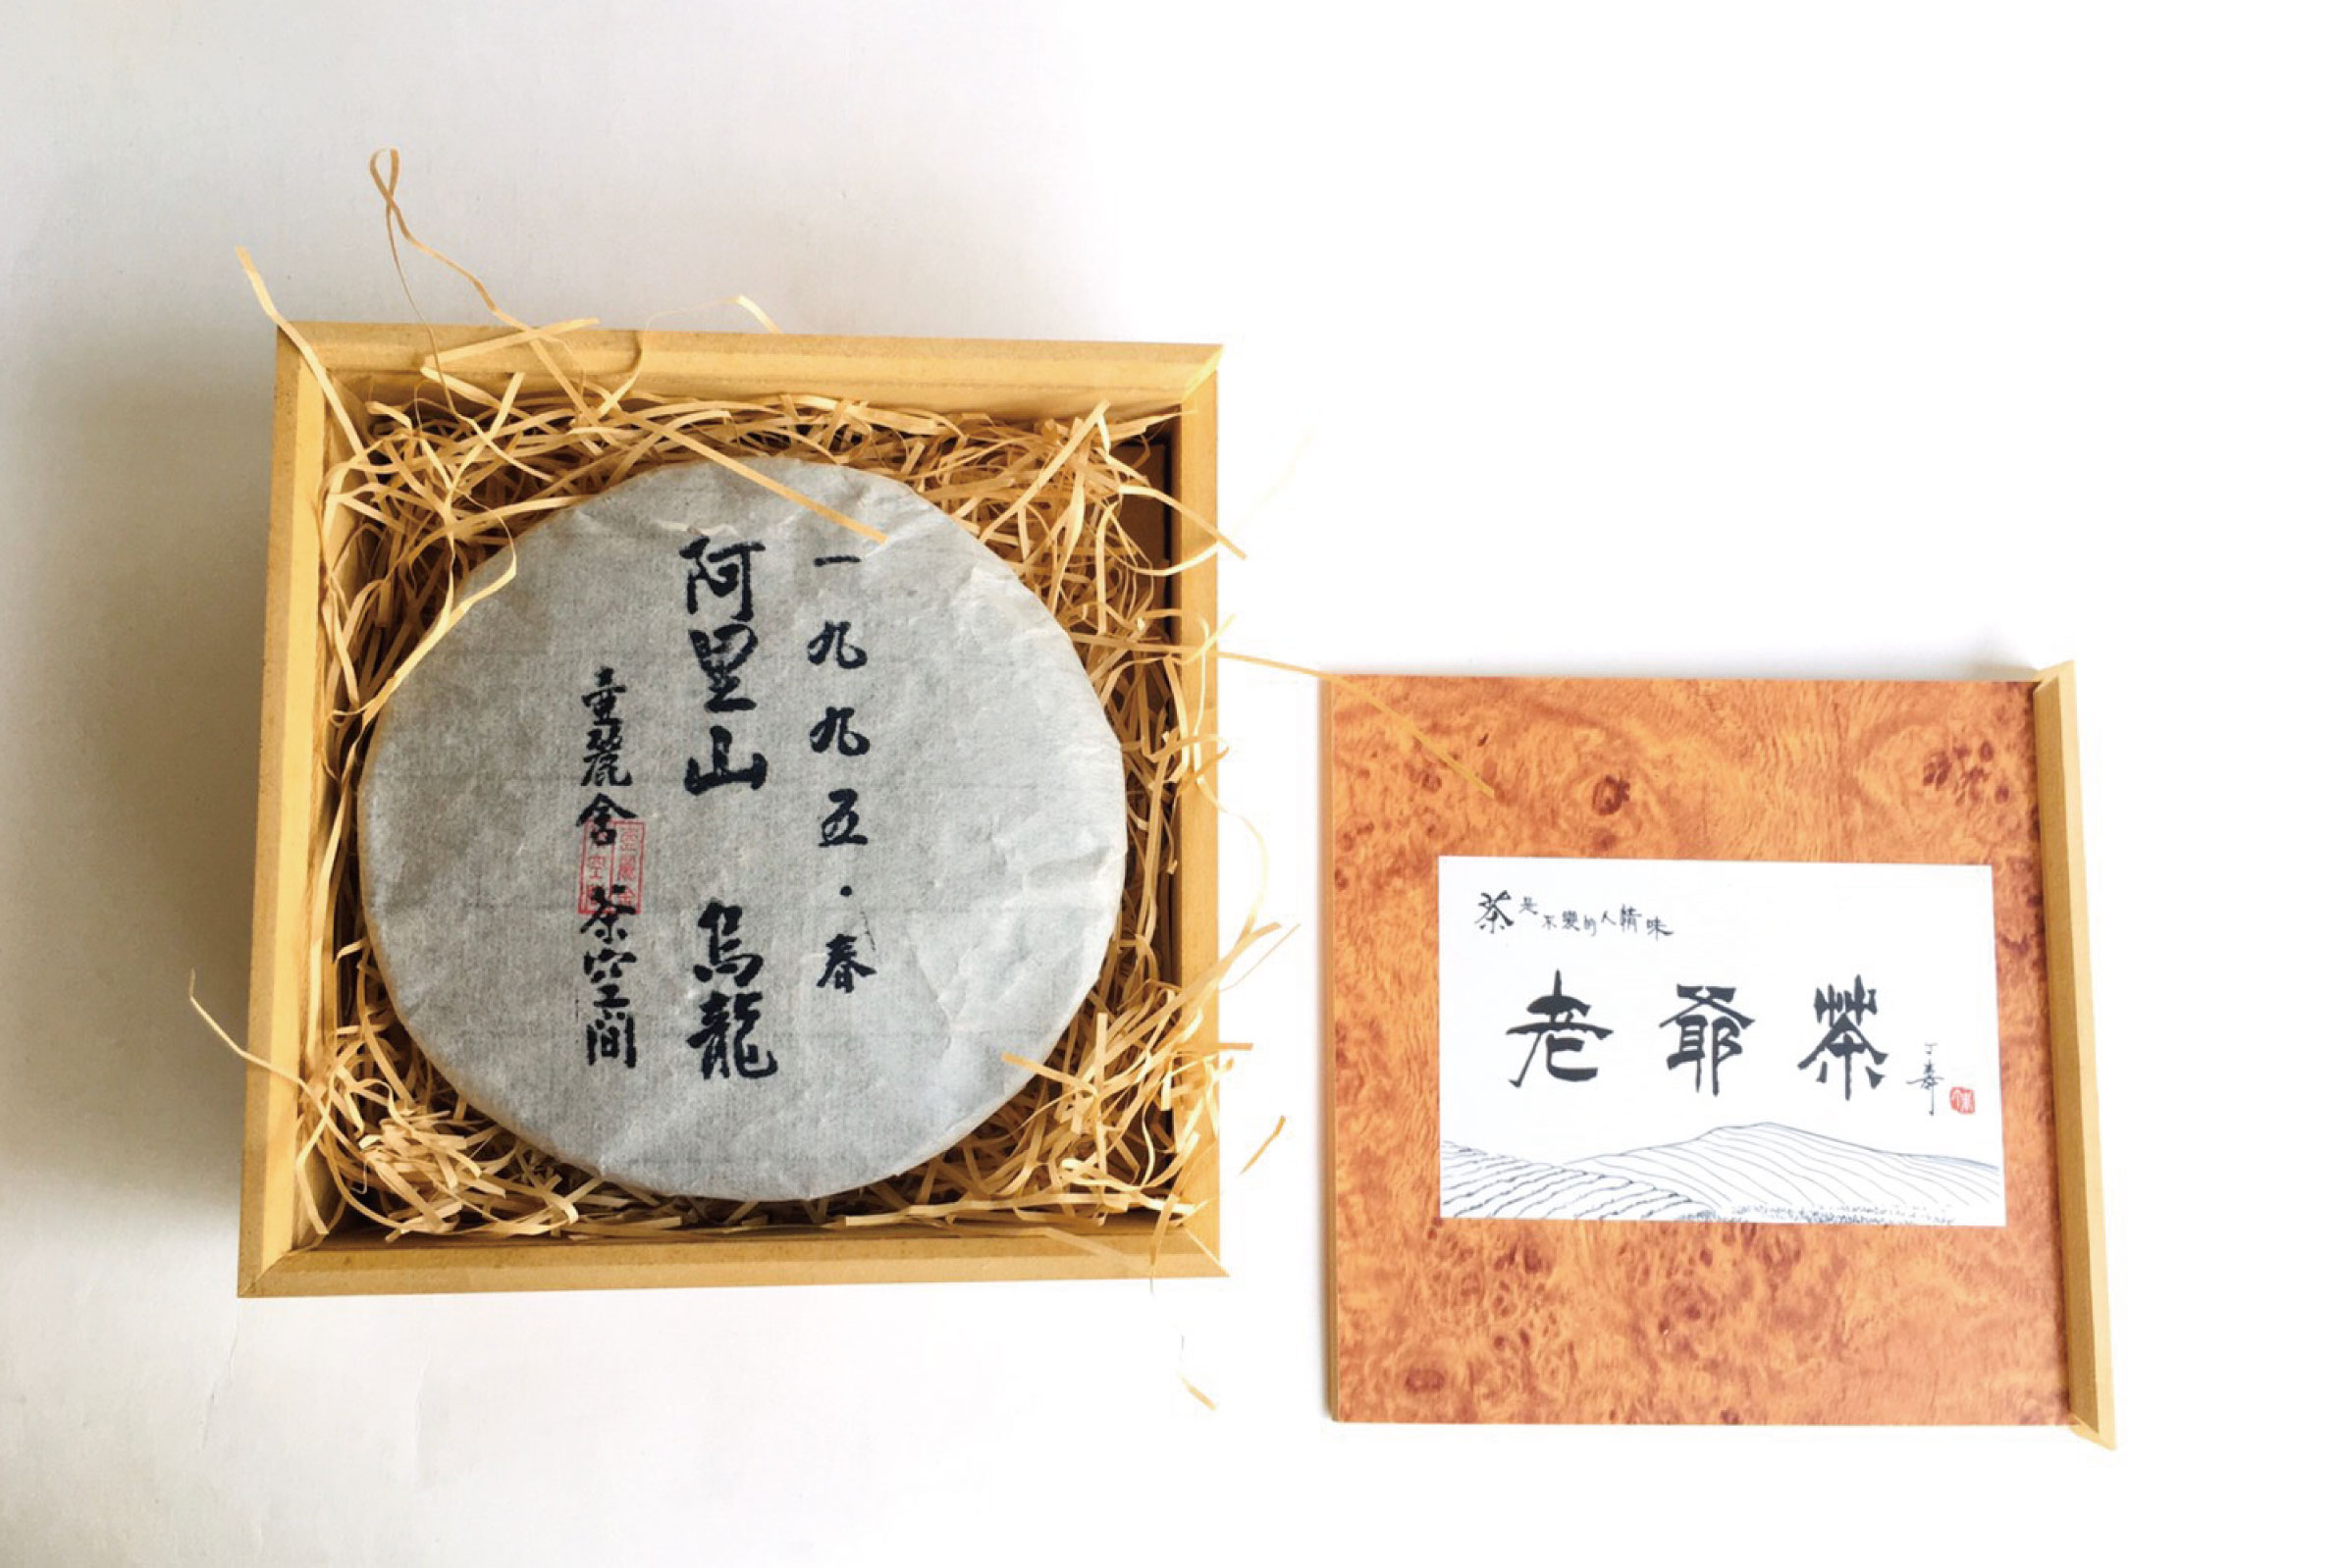 一九九五·春
阿里山 烏龍
壺麗舍 茶空間
茶是不變的人情味
老爺茶